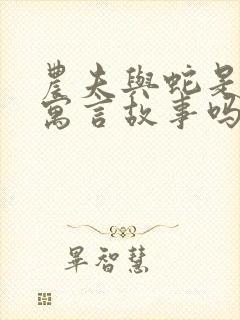 農夫與蛇是
寓言故事吗
畢智慧